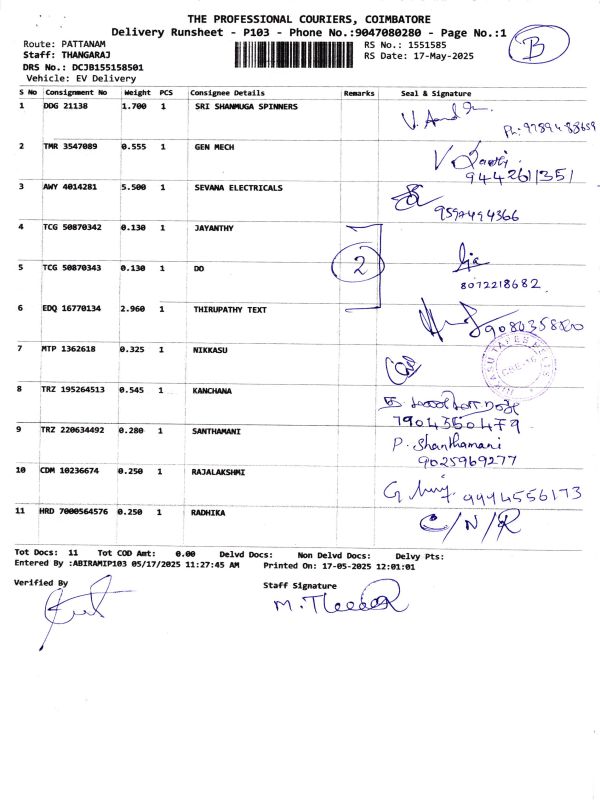 THE PROFESSIONAL COURIERS, COIMBATORE
Delivery Runsheet - P103 - Phone No.:9047080280 - Page No.:1
B
Route: PATTANAM
RS No.: 1551585
Staff: THANGARAJ
RS Date: 17-May-2025
DRS No.: DCJB155158501
Vehicle: EV Delivery
S No Consignment No Weight PCS Consignee Details Remarks Seal & Signature
1 DDG 21138 1.700 1 SRI SHANMUGA SPINNERS
2 TMR 3547089 0.555 1 GEN MECH
9442611351
3 AWY 4014281 5.500 1 SEVANA ELECTRICALS
4 TCG 50870342 0.130 1 JAYANTHY
2
5 TCG 50870343 0.130 1 DO
8072218682
6 EDQ 16770134 2.960 1 THIRUPATHY TEXT
7 MTP 1362618 0.325 1 NIKKASU
8 TRZ 195264513 0.545 1 KANCHANA
7904350479
9 TRZ 220634492 0.280 1 SANTHAMANI
P. Shanthamani
9025969277
10 CDM 10236674 0.250 1 RAJALAKSHMI
9994556173
11 HRD 7000564576 0.250 1 RADHIKA
C/N/R
Tot Docs: 11 Tot COD Amt: 0.00 Delvd Docs: Non Delvd Docs: Delvy Pts:
Entered By :ABIRAMIP103 05/17/2025 11:27:45 AM Printed On: 17-05-2025 12:01:01
Verified By
Staff Signature